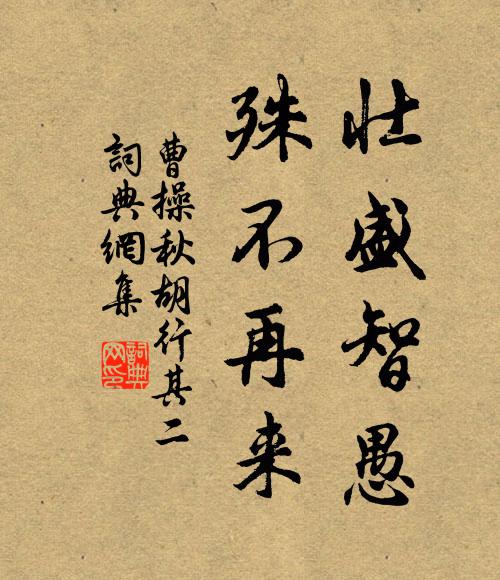 壯盛智愚
殊不再来
曹操秋胡行其二
詞典網集
詞典網印